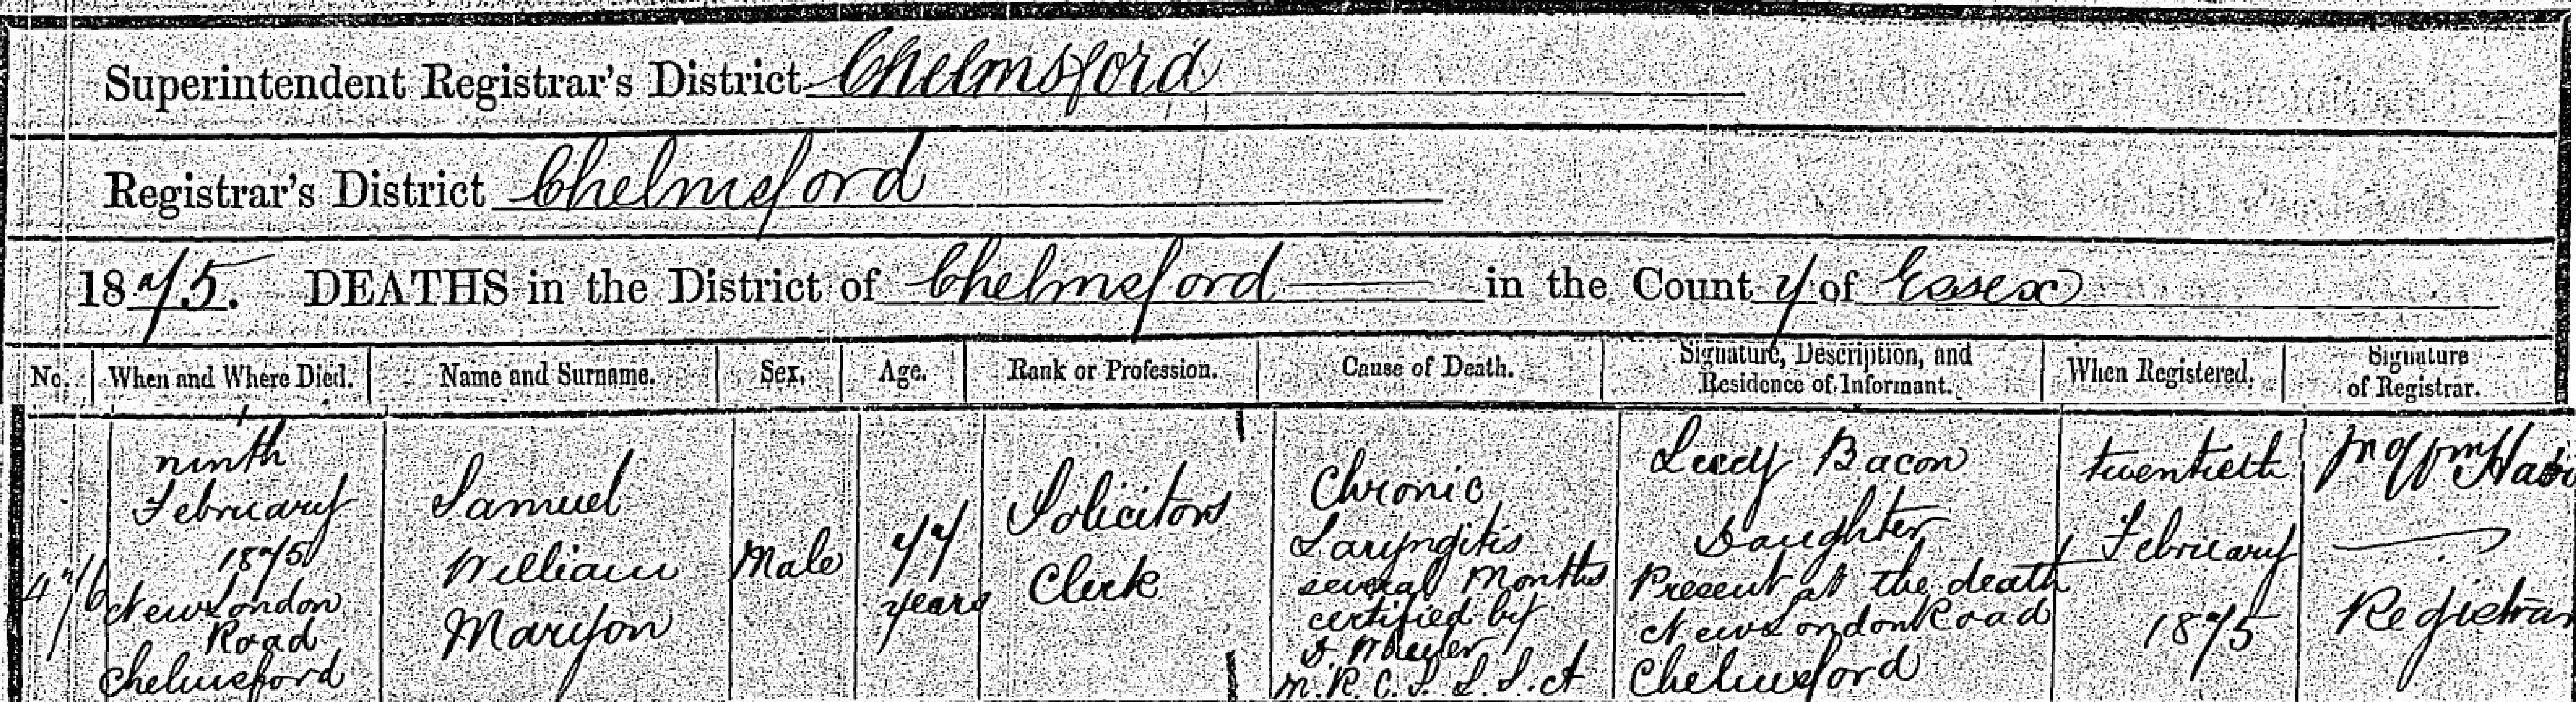 Superintendent Registrar's District Chelmsford
Registrar's District Chelmsford
1875. DEATHS in the District of Chelmsford in the County of Essex
No. When and Where Died. Name and Surname. Sex. Age. Rank or Profession. Cause of Death. Signature, Description, and Residence of Informant. When Registered. Signature of Registrar.
476
ninth
February
1875
New London
Road
Chelmsford
Samuel
William
Maryon
Male
77
years
Solicitors
Clerk
Chronic
Laryngitis
several Months
certified by
M.R.C.S. L.S.A
Lucy Bacon
Daughter
Present at the death
New London Road
Chelmsford
twentieth
February
1875
Registrar